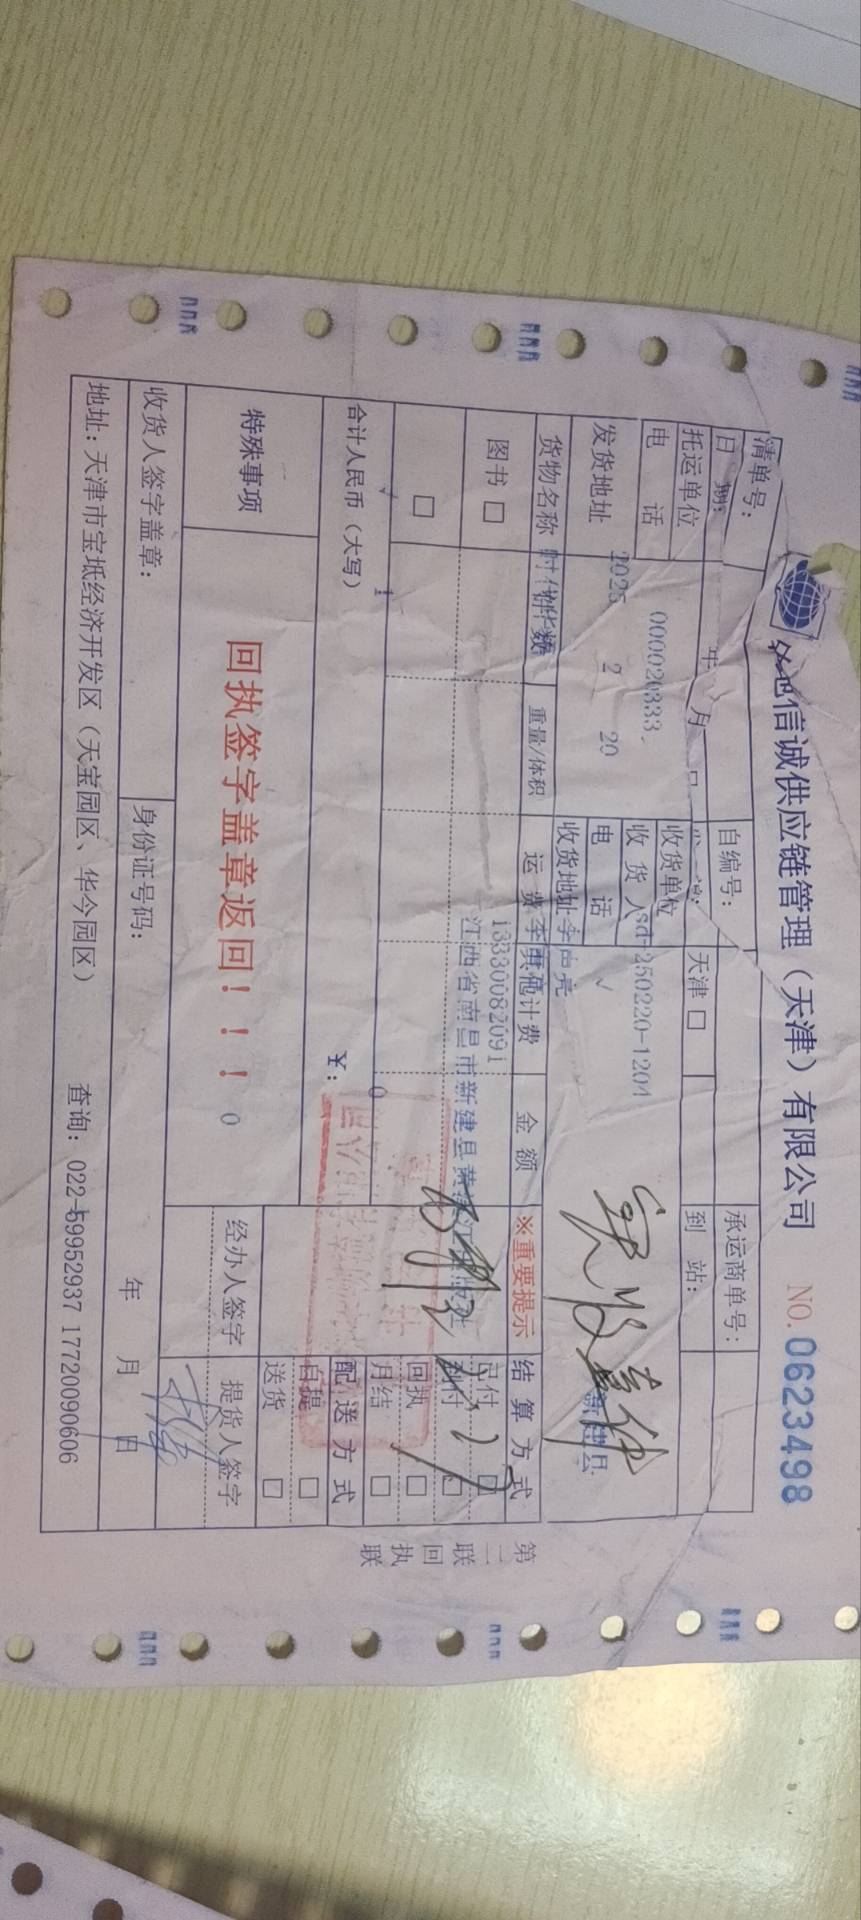 信诚供应链管理（天津）有限公司 NO. 0623498
清单号： 自编号： 承运商单号：
日期： 年 月 日 天津 □ 到 站：
托运单位 收货单位
000020333 sd-250220-1204
电 话 收 货 人
2025 2 20 √
发货地址 电 话
收货地址 李声亮 新建县
货物名称 时代华 件数 重量/体积 运 费 其他计费 金 额 ※重要提示 结 算 方 式
13330082091
图书 □ 江西省南昌市新建县黄 已付 □
到付 □
□ 回执 □
月结 □
1 0
合计人民币（大写） ￥： 配 送 方 式
自提 □
送货 □
特殊事项 回执签字盖章返回！！！ 0 经办人签字 提货人签字
收货人签字盖章： 身份证号码： 年 月 日
地址：天津市宝坻经济开发区（天宝园区、华今园区） 查询：022-59952937 17720090606
第二联 回执联